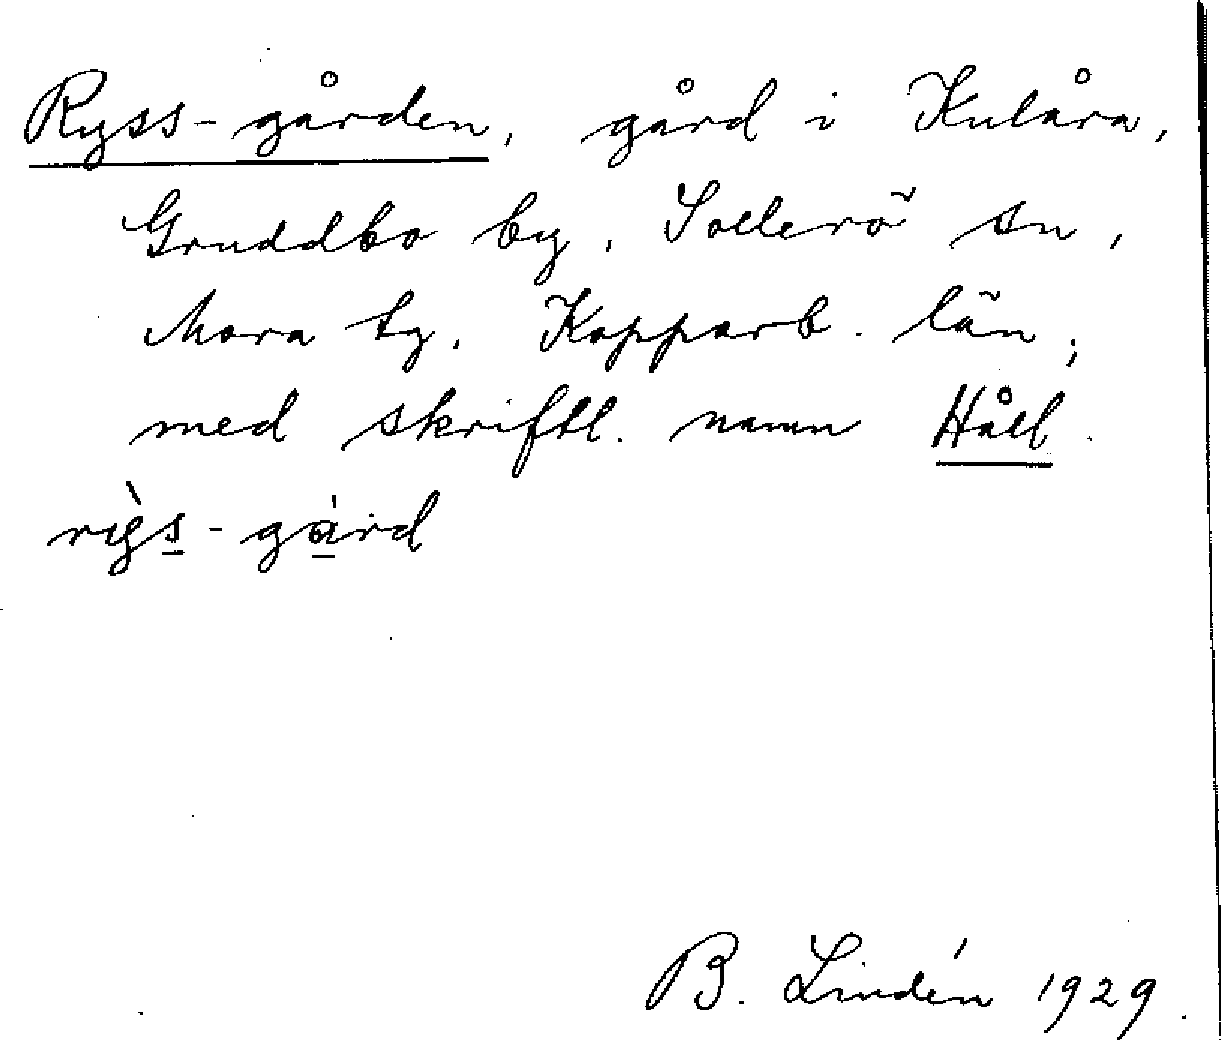 Ryss-gården, gård i Kulåra,
Gruddbo by, Sollerö sn,
Mora tg, Kopparb. län;
med skriftl. namn Håll.
rìys-gàrd
B. Lindén 1929.